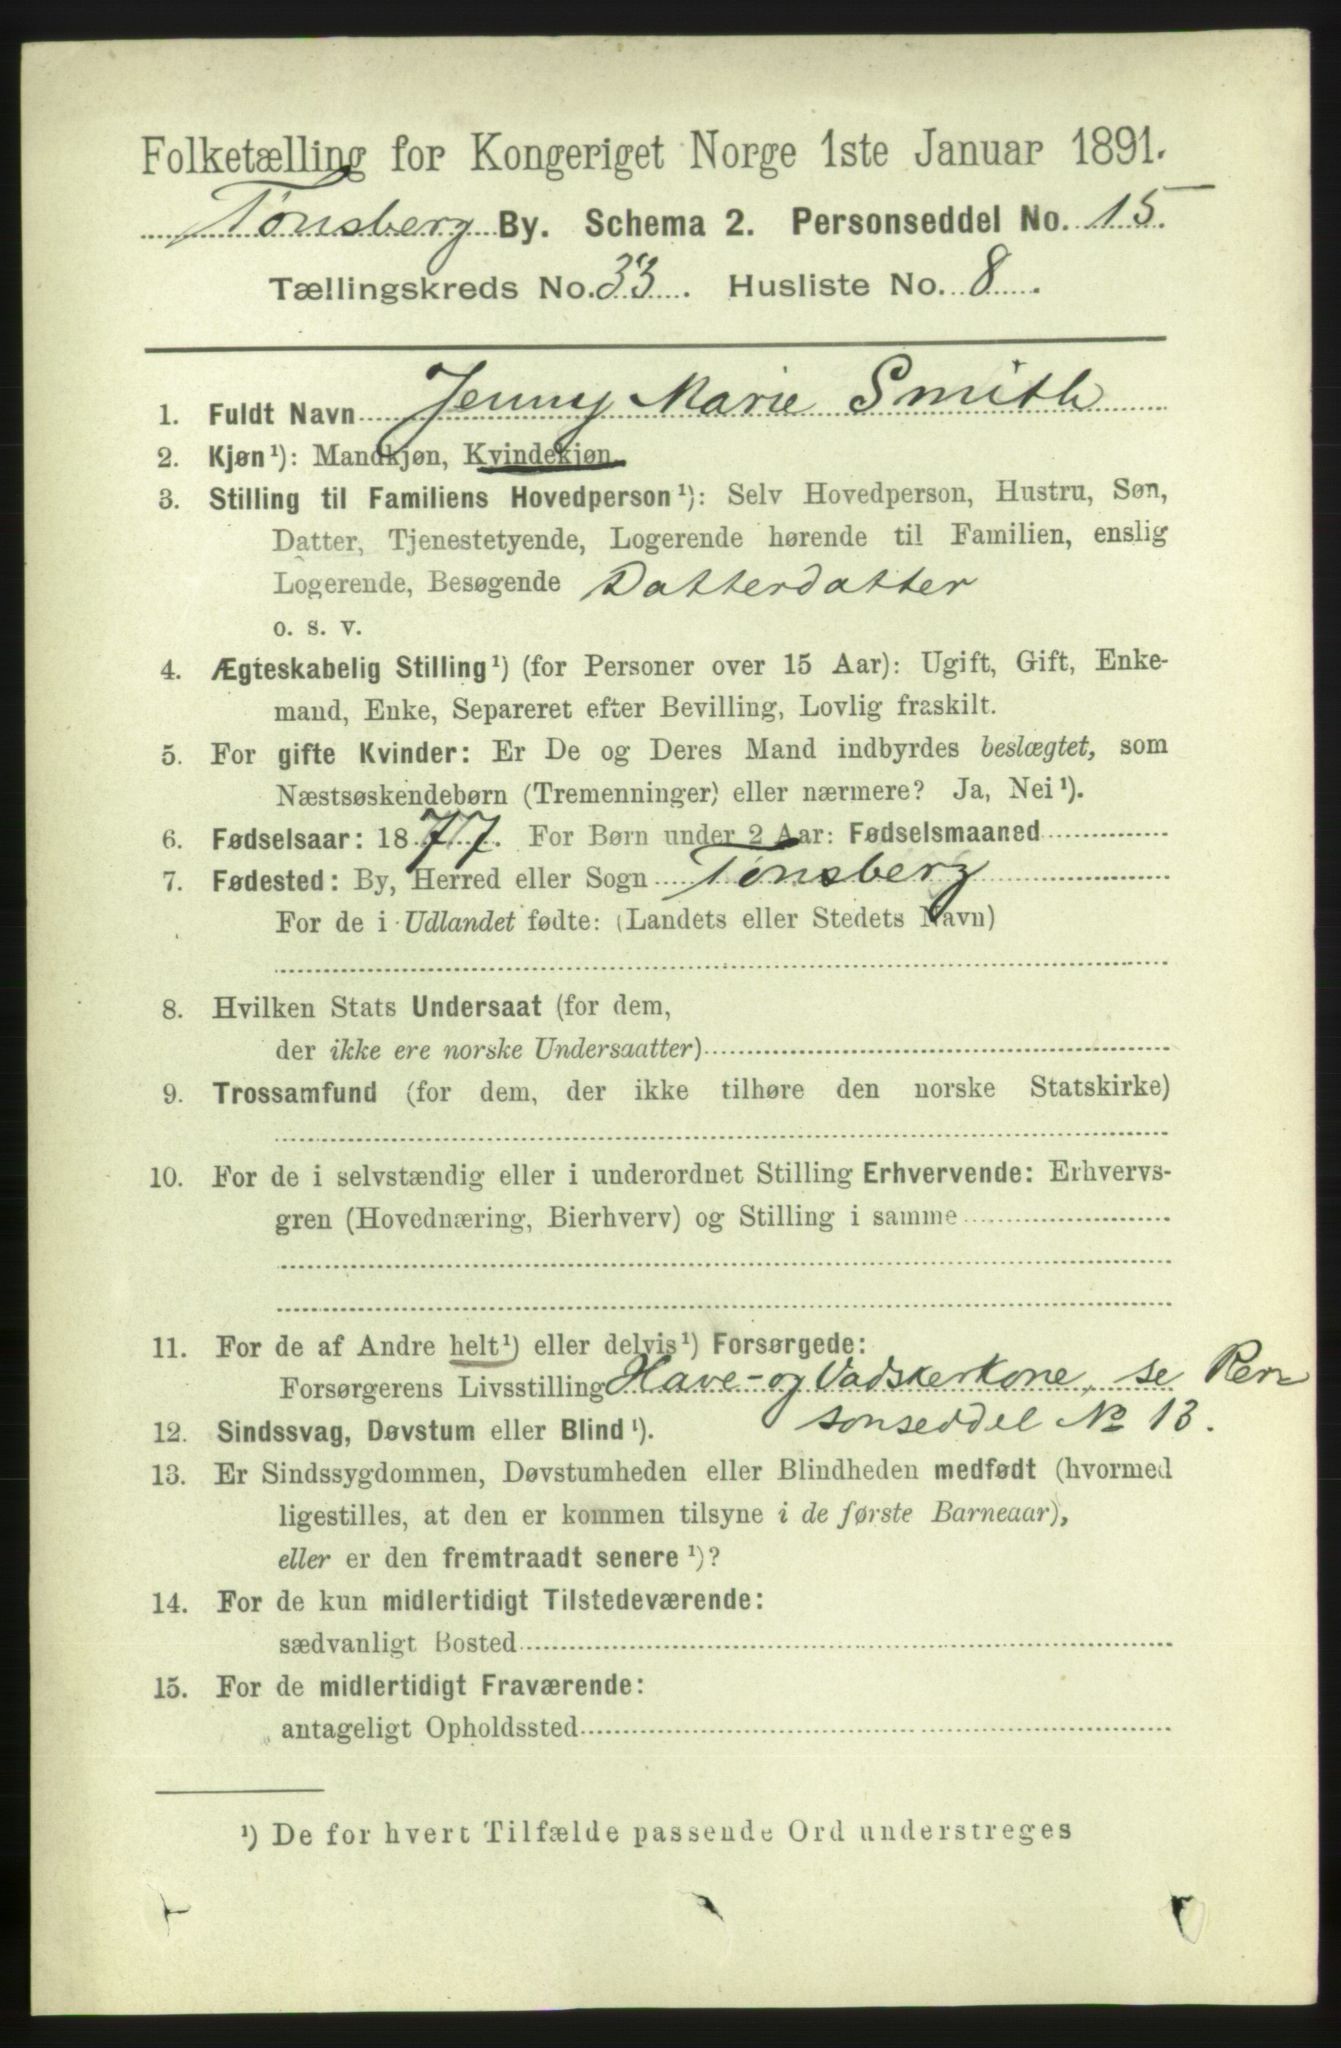 Folketælling for Kongeriget Norge 1ste Januar 1891.
Tønsberg By. Schema 2. Personseddel No. 15.
Tællingskreds No. 33. Husliste No. 8.
1. Fuldt Navn Jenny Marie Smith
2. Kjøn¹): Mandkjøn, Kvindekjøn
3. Stilling til Familiens Hovedperson¹): Selv Hovedperson, Hustru, Søn,
Datter, Tjenestetyende, Logerende hørende til Familien, enslig
Logerende, Besøgende Datterdatter
o. s. v.
4. Ægteskabelig Stilling¹) (for Personer over 15 Aar): Ugift, Gift, Enke-
mand, Enke, Separeret efter Bevilling, Lovlig fraskilt.
5. For gifte Kvinder: Er De og Deres Mand indbyrdes beslægtet, som
Næstsøskendebørn (Tremenninger) eller nærmere? Ja, Nei¹).
6. Fødselsaar: 1877. For Børn under 2 Aar: Fødselsmaaned
7. Fødested: By, Herred eller Sogn Tønsberg
For de i Udlandet fødte: (Landets eller Stedets Navn)
8. Hvilken Stats Undersaat (for dem,
der ikke ere norske Undersaatter)
9. Trossamfund (for dem, der ikke tilhøre den norske Statskirke)
10. For de i selvstændig eller i underordnet Stilling Erhvervende: Erhvervs-
gren (Hovednæring, Bierhverv) og Stilling i samme
11. For de af Andre helt¹) eller delvis¹) Forsørgede:
Forsørgerens Livsstilling Have- og Vadskerkone, se Per-
sonseddel No 13.
12. Sindssvag, Døvstum eller Blind¹).
13. Er Sindssygdommen, Døvstumheden eller Blindheden medfødt (hvormed
ligestilles, at den er kommen tilsyne i de første Barneaar),
eller er den fremtraadt senere¹)?
14. For de kun midlertidigt Tilstedeværende:
sædvanligt Bosted
15. For de midlertidigt Fraværende:
antageligt Opholdssted
¹) De for hvert Tilfælde passende Ord understreges